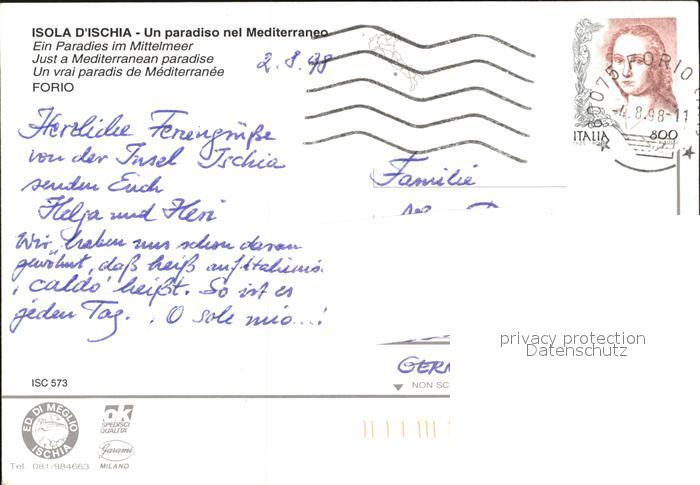 ISOLA D'ISCHIA - Un paradiso nel Mediterraneo
Ein Paradies im Mittelmeer
Just a Mediterranean paradise
Un vrai paradis de Méditerranée
FORIO
2.8.98
Herzliche Feriengrüße
von der Insel Ischia
senden Euch
Helga und Heri
Wir haben uns schon daran
gewöhnt, daß heiß auf Italienis.
"caldo" heißt. So ist es
jeden Tag. . O sole mio...!
ISC 573
ED. DI MEGLIO
ISCHIA
Tel. 081/984663
ok
SPEDISCI
QUALITA'
Garami
MILANO
80075 FORIO
-4.8.98-11
ITALIA 800
Familie
GER
NON SC
privacy protection
Datenschutz